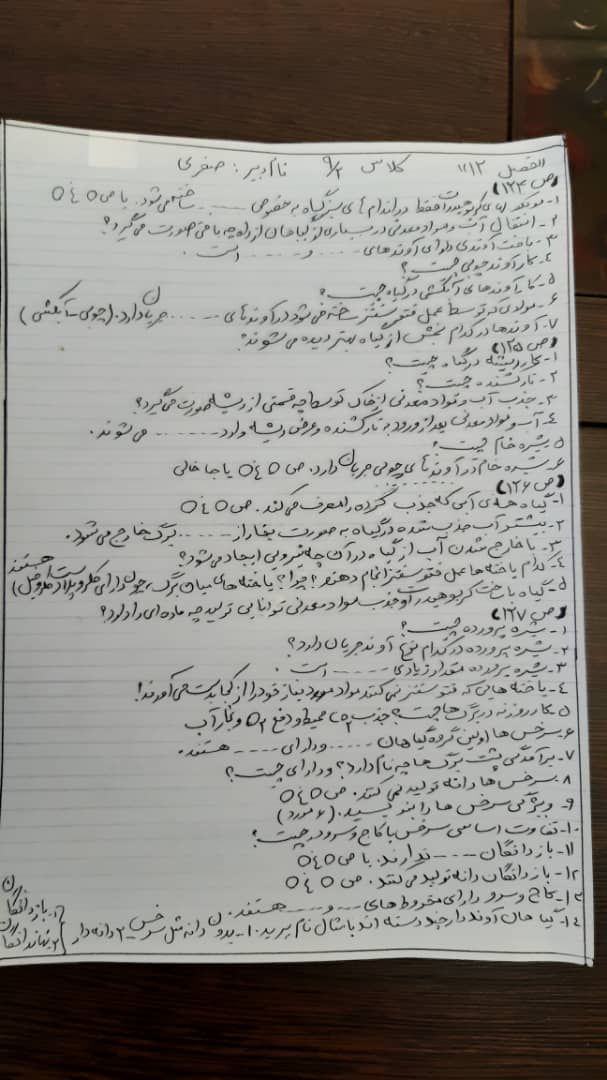 الفصل ۱۲ "۱۱ کلاس ۹/۲ نام دبیر: صفری
(ص ۱۲۴)
۱- مونو کربوهیدرات فقط در اندام های سبز گیاه به خصوص ...... ساخته می شود. با ص ٥ غ ٥
۲- انتقال آب و مواد معدنی در بسیاری از گیاهان از راه چه بافتی صورت می گیرد؟
۳- بافت آوندی دارای آوندهای ...... و ...... است.
۴- کار آوند چوبی چیست؟
۵- کار آوندهای آبکشی در گیاه چیست؟
۶- موادی که توسط عمل فتوسنتز ساخته می شود در آوندهای ...... جریان دارد. (چوبی - آبکشی)
۷- آوندها در کدام بخش از گیاه بهتر دیده می شوند؟
(ص ۱۲۵)
۱- کار ریشه در گیاه چیست؟
۲- تارکشنده چیست؟
۳- جذب آب و مواد معدنی از خاک توسط چه قسمتی از ریشه صورت می گیرد؟
۴- آب و مواد معدنی بعد از ورود به تارکشنده و عرض ریشه وارد ........ می شوند.
۵- شیره خام چیست؟
۶- شیره خام در آوندهای چوبی جریان دارد. ص ٥ غ ٥ یا جا خالی
(ص ۱۲۶)
۱- گیاه همه ی آبی که جذب کرده را مصرف می کند. ص ٥ غ ٥
۲- بیشتر آب جذب شده در گیاه به صورت بخار از ...... برگ خارج می شود.
۳- با خارج شدن آب از گیاه در آن چه نیرویی ایجاد می شود؟
۴- کدام یاخته ها عمل فتوسنتز انجام دهند؟ چرا؟ یاخته های میان برگ، چون دارای کلروپلاست (کلروفیل) هستند
۵- گیاه با ساخت کربوهیدرات و جذب مواد معدنی توانایی تولید چه ماده ای را دارد؟
(ص ۱۲۷)
۱- شیره پرورده چیست؟
۲- شیره پرورده در کدام نوع آوند جریان دارد؟
۳- شیره پرورده مقدار زیادی ...... است.
۴- یاخته هایی که فتوسنتز نمی کنند مواد مورد نیاز خود را از کجا بدست می آورند!
۵- کار روزنه در برگ ها چیست؟ جذب از محیط و دفع و بخار آب
۶- سرخس ها اولین گروه گیاهان ...... و دارای ...... هستند.
۷- برآمدگی پشت برگ ها چه نام دارد؟ و دارای چیست؟
۸- سرخس ها دانه تولید نمی کنند. ص ٥ غ ٥
۹- ویژگی سرخس ها را بنویسید. (۶ مورد)
۱۰- تفاوت اساسی سرخس با کاج و سرو در چیست؟
۱۱- بازدانگان ...... ندارند. با ص ٥ غ ٥
۱۲- بازدانگان دانه تولید می کنند. ص ٥ غ ٥
۱۳- کاج و سرو دارای مخروط های ...... و ...... هستند.
۱۴- گیاهان آوند دار چند دسته اند با مثال نام ببرید. ۱- بدون دانه مثل سرخس ۲- دانه دار
۱- بازدانگان
۲- نهاندانگان